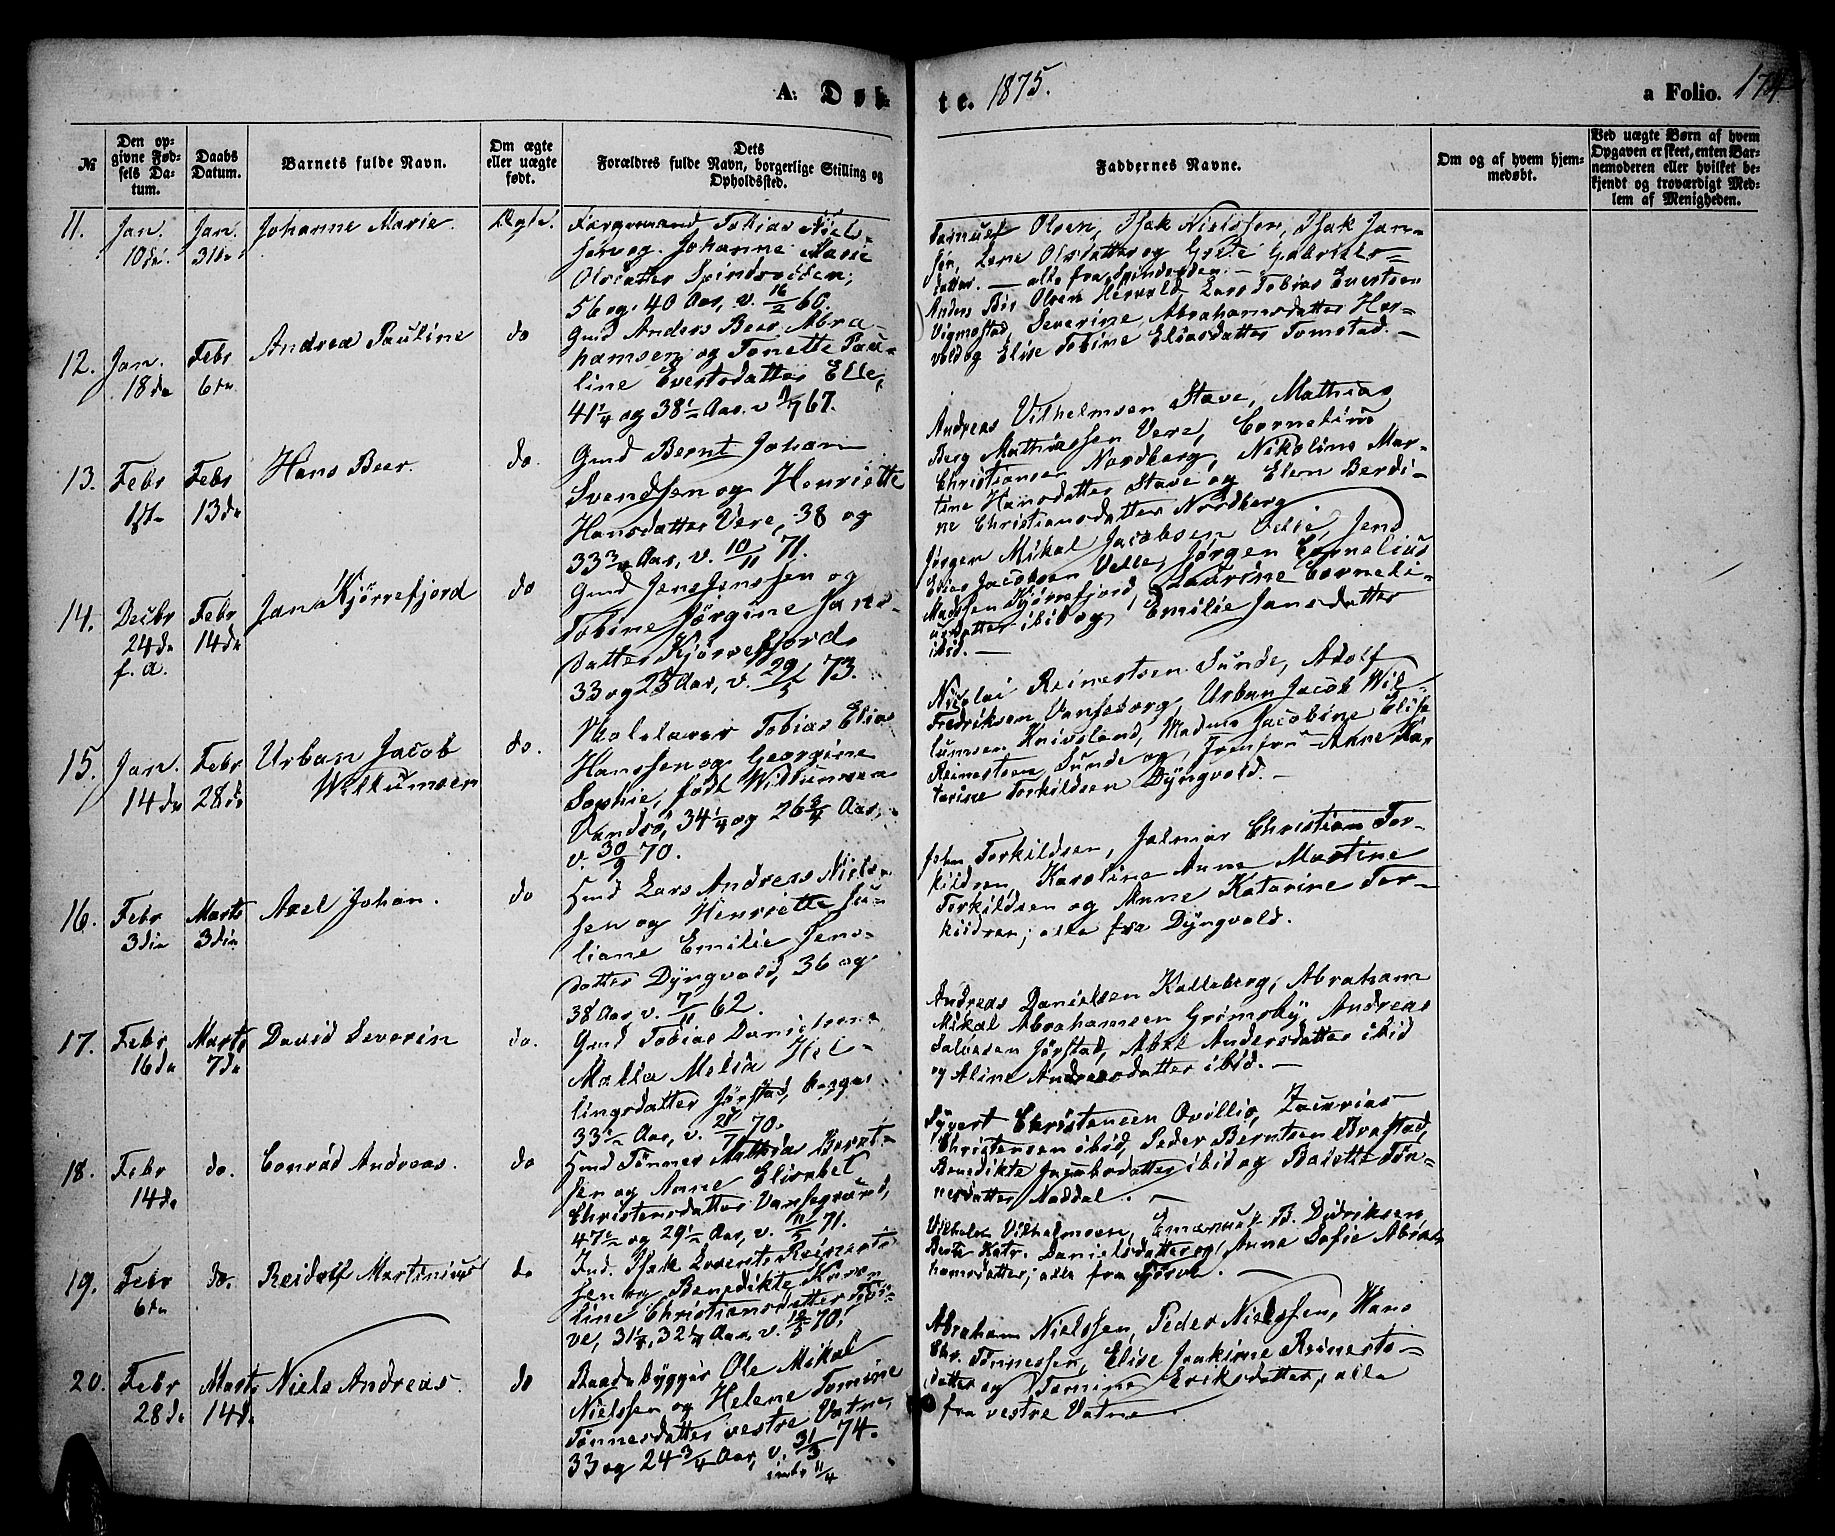 A: Døb-
te. 1875.
a Folio. 174
№
Den op-
givne Fød-
sels Da-
tum.
Daabs
Datum.
Barnets fulde Navn.
Om ægte
eller uægte
født.
Dets
Forældres fulde Navn, borgerlige Stilling og
Opholdssted.
Faddernes Navne.
Om og af hvem hjem-
medøbt.
Ved uægte Børn af hvem
Opgaven er skeet, enten Bar-
nemoderen eller hvilket be-
kjendt og troværdigt Med-
lem af Menigheden.
11.
Jan.
10de
Jan.
31te
Johanne Marie.
Ægte.
Tobias Niels-
sen og Johanne Marie
Olsdatter Spindsodden;
56 og 40 Aar, v. 16/2 60.
Samuel Olsen, Isak Nielssen, Isak Jan-
sen, Lene Olsdatter og Grete Gabriels-
datter. — alle fra Spindsodden. —
12.
Jan.
18de
Febr
6te
Andrea Pauline
do
Gmd Anders Beer Abra-
hamsen og Tonette Pau-
line Evertsdatter Elle,
41 1/4 og 38 1/2 Aar. v 67.
Anders Bir Olsen Hervold Lars Tobias Evertsen
Vigmostad, Severine Abrahamsdatter Her-
vold og Elise Tobine Eliasdatter Tomstad. —
13.
Febr
1ste
Febr
13de
Hans Beer.
do.
Gmd Bernt Johan
Svendsen og Henriette
Hansdatter Vere, 38 og
33 3/4 Aar, v. 10/11 71.
Andreas Vilhelmsen Stave, Mathias
Berg Mathiassen Vere, Cornelius
Christiansen Nordberg, Nikoline Mar-
tine Hansdatter Stave og Elen Berdi-
ne Christiansdatter Nordberg
14.
Decbr
24de
f. a.
Febr
14de
Jens Kjørrefjord
do
Gmd Jens Jenssen og
Tobine Jørgine Jans-
datter Kjørrefjord
33 og 23 Aar, v. 29/5 73.
Jørgen Mikal Jacobsen Velle, Jens
Elias Jacobsen Velle, Jørgen Cornelius
Madssen Kjørrefjord, Laurine Corneli-
usdatter ibid og Emilie Jansdatter
ibid. —
15.
Jan.
14de
Febr
28de
Urban Jacob
Willumsen
do.
Skolelærer Tobias Elias
Hanssen og Georgine
Sophie, født Willumsen
Vandsø, 34 1/4 og 26 3/4 Aar,
v. 30/9 70.
Nicolai Reinertsen Sunde, Adolf
Fredriksen Vanseborg, Urban Jacob Wil-
lumsen Knivsland, Madme Jacobine Elise
Reinertsen Sunde og Jomfru Anne Ka-
tarine Torkildsen Dyngvold. —
16.
Febr
3die
Marts
3die
Axel Johan.
do
Hmd Lars Andreas Niels-
sen og Henriette Ju-
liane Emilie Jens-
datter Dyngvold, 36 og
38 Aar, v. 7/11 62.
John Torkildsen, Jalmar Christian Tor-
kildsen, Karoline Anne Martine
Torkildsen og Anne Katarine Tor-
kildsen; alle fra Dyngvold.
17.
Febr
16de
Marts
7de
David Severin
do.
Gmd Tobias Danielsen
Malla Melia Hel-
lingsdatter Jørstad, begge
33 1/2 Aar, v. 70.
Andreas Danielsen Kalleberg, Abraham
Mikal Abrahamsen Grimsby, Andreas
Salvesen Jørstad, Abel Andersdatter ibid
og Aline Andreasdatter ibid. —
18.
Febr
14de
do.
Conrad Andreas.
do
Hmd Tønnes Mathias Bernt-
sen og Anne Elisabet
Christensdatter Vansegrund,
47 1/2 og 29 1/2 Aar, v. 11/5 71.
Sygert Christensen Ovillie, Zacarias
Christensen ibid, Peder Berntsen Brastad,
Benedikte Jacobsdatter ibid og Baiette Tøn-
nesdatter Naddal. —
19.
Febr
6te
do.
Reidolf Martinius
do
Ind. Isak Lorents Reinerts-
sen og Benedikte Karo-
line Christiansdatter Tjør-
ve, 31 1/4, 32 1/4 Aar, v. 70.
Vilhelm Vilhelmsen, Emanuel B. Didriksen,
Berte Katr. Danielsdatter og Anne Sofie Abra-
hamsdatter; alle fra Tjørve. —
20.
Febr
28de
Marts
14de
Niels Andreas.
do
Baadebygger Ole Mikal
Nielssen og Helene Tomine
Tønnesdatter vestre Vatne,
33 og 24 3/4 Aar, v. 31/3 74.
intr 11/4
Abraham Nielssen, Peder Nielssen, Hans
Chr. Tønnessen, Elise Joakime Reinerts-
datter og Tomine Eriksdatter, alle
fra vestre Vatne.